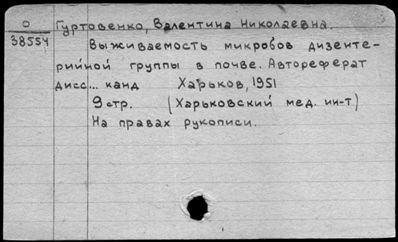 О
38554
Гуртовенко, Валентина Николаевна.
Выживаемость микробов дизенте-
рийной группы в почве. Автореферат
дисс... канд Харьков, 1951
9 стр. (Харьковский мед. ин-т)
На правах рукописи.